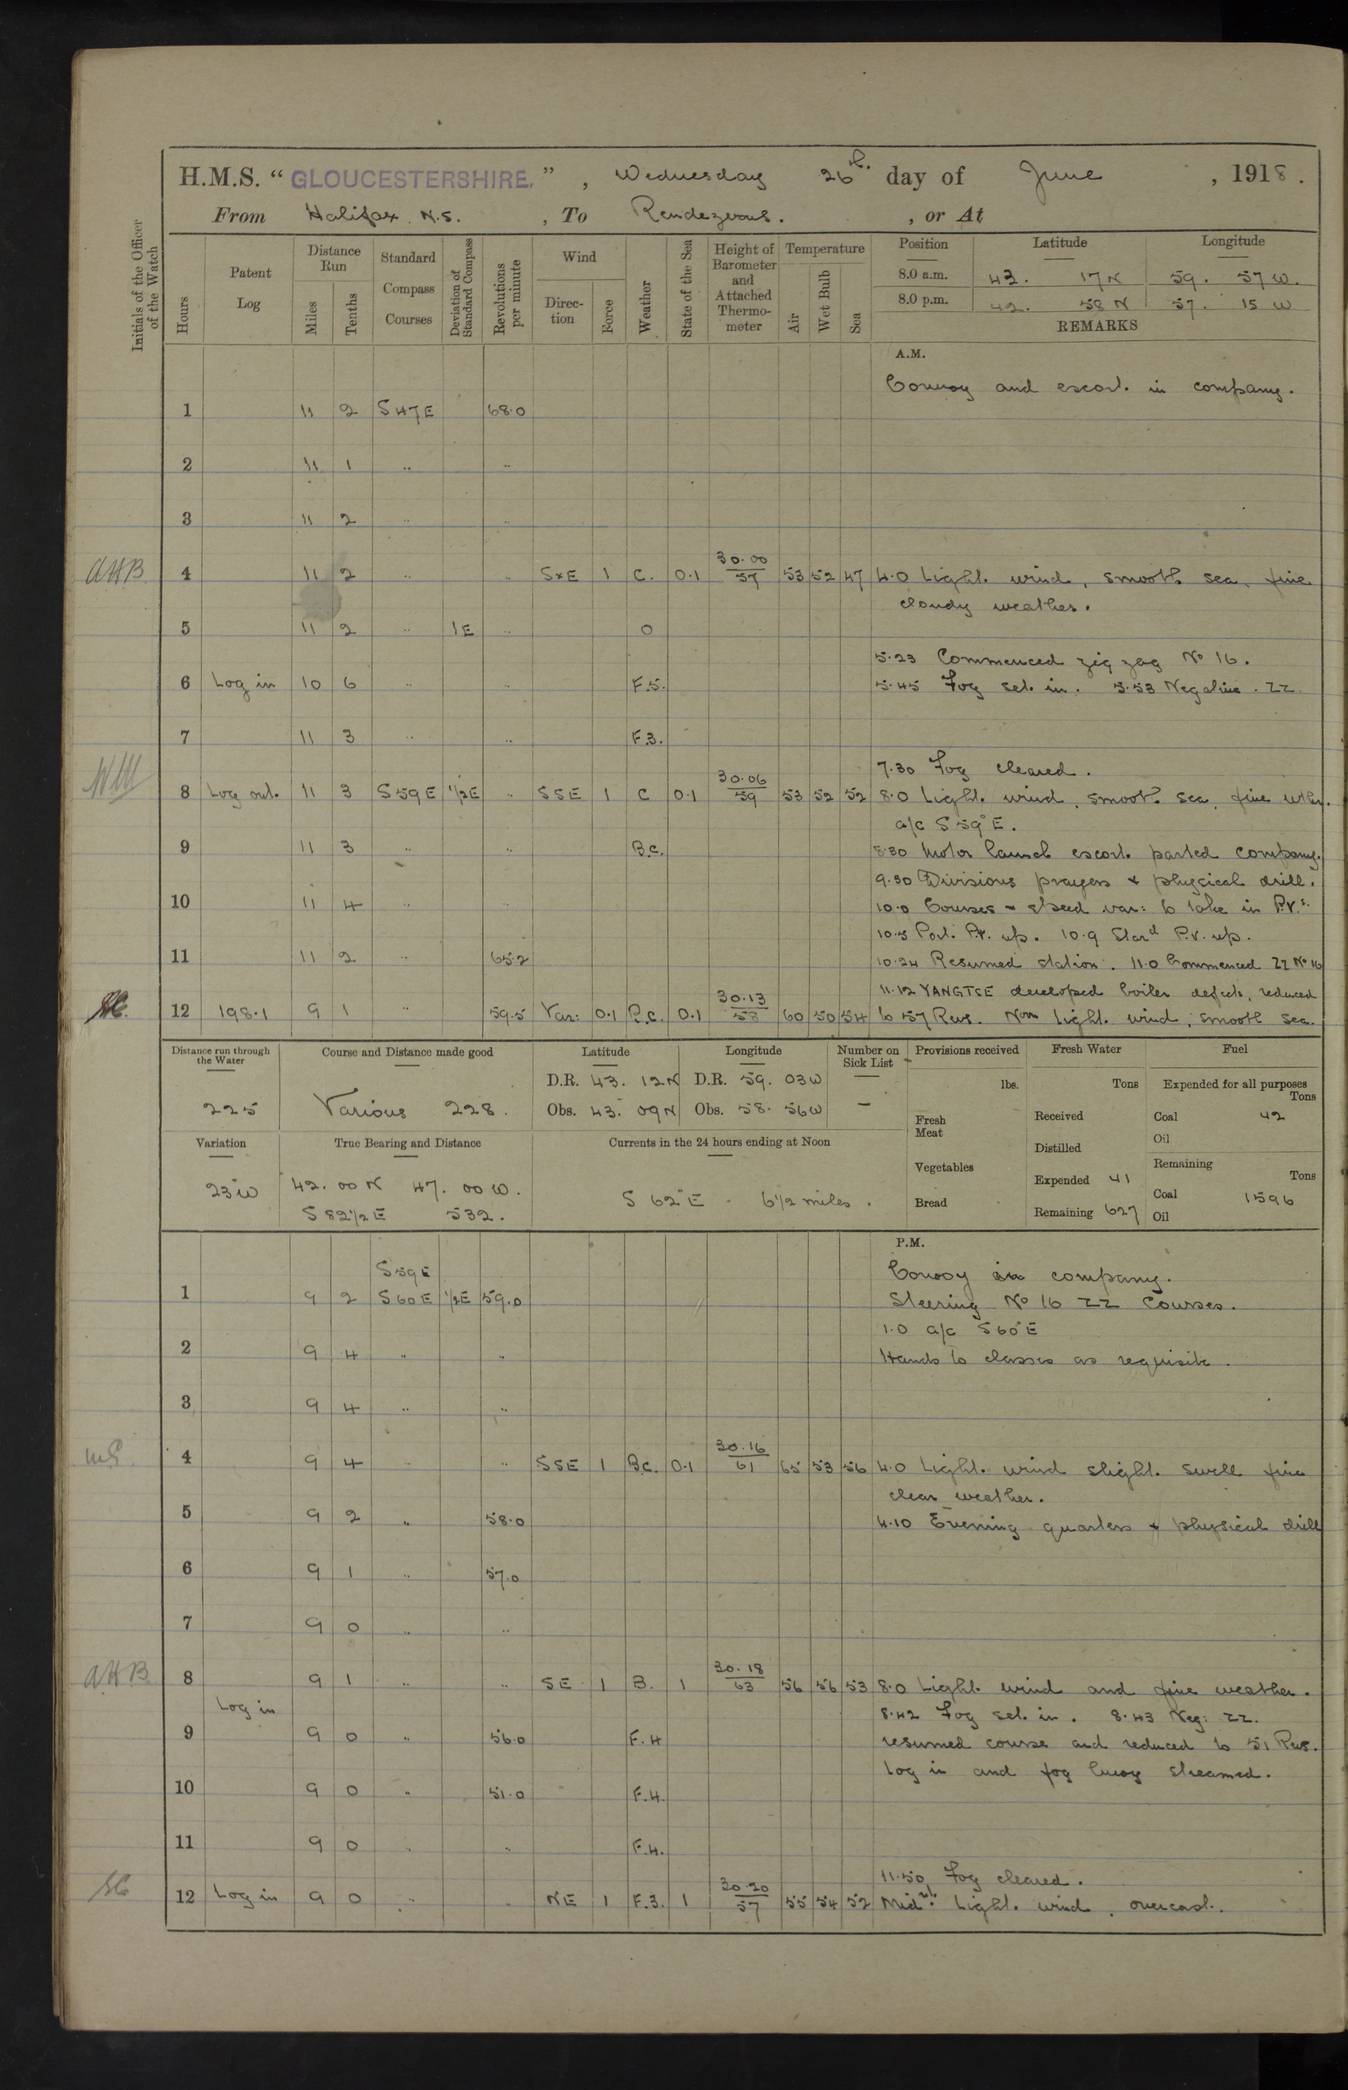 H.M.S. " GLOUCESTERSHIRE. " , Wednesday 26th day of June , 1918 .
From Halifax N.S. , To Rendezvous. , or At
Initials of the Officer of the Watch
Hours
Patent Log
Distance Run
Miles
Tenths
Standard Compass Courses
Deviation of Standard Compass
Revolutions per minute
Wind
Direction
Force
Weather
State of the Sea
Height of Barometer and Attached Thermometer
Temperature
Air
Wet Bulb
Sea
Position Latitude Longitude
8.0 a.m. 43. 17 N 59. 57 W.
8.0 p.m. 42. 58 N 57. 15 W
REMARKS
A.M.
Convoy and escort. in company.
1 11 2 S 47 E 68.0
2 11 1 " "
3 11 2 " "
AHB 4 11 2 " " SxE 1 C. 0.1 30.00/57 53 52 47 4.0 Light. wind, smooth sea, fine
cloudy weather.
5 11 2 " 1E " O
5.23 Commenced zig zag No 16.
6 Log in 10 6 " " F.5. 5.45 Fog set. in. 5.53 Negative. ZZ
7 11 3 " " F.3.
7.30 Fog cleared.
8 Log out. 11 3 S 59 E 1/2E " SSE 1 C 0.1 30.06/59 53 52 52 8.0 Light. wind, smooth sea, fine wthr.
a/c S 59° E.
9 11 3 " " B.c. 8.30 Motor launch escort. parted company.
9.30 Divisions prayers & physical drill.
10 11 4 " " 10.0 Courses & speed var: to take in P.V.s.
10.5 Port. P.V. up. 10.9 Stard P.V. up.
11 11 2 " 65.2 10.24 Resumed station. 11.0 Commenced ZZ No 16
11.12 YANGTSE developed boiler defects, reduced
12 198.1 9 1 " 59.5 Var: 0.1 B.c. 0.1 30.13/58 60 50 54 to 57 Revs. Noon light. wind, smooth sea.
Distance run through the Water
225
Course and Distance made good
Various 228.
Latitude
D.R. 43. 12 N
Obs. 43. 09 N
Longitude
D.R. 59. 03 W
Obs. 58. 56 W
Number on Sick List
-
Provisions received
lbs.
Fresh Meat
Vegetables
Bread
Fresh Water
Tons
Received
Distilled
Expended 41
Remaining 627
Fuel
Expended for all purposes
Tons
Coal 42
Oil
Remaining
Tons
Coal 1596
Oil
Variation
23°W
True Bearing and Distance
42. 00 N 47. 00 W.
S 82 1/2 E 532.
Currents in the 24 hours ending at Noon
S 62° E - 6 1/2 miles.
P.M.
S 59 E Convoy in company.
1 9 2 S 60 E 1/2E 59.0 Steering No 16 ZZ Courses.
1.0 a/c S 60° E
2 9 4 " " Hands to classes as requisite.
3 9 4 " "
4 9 4 " " SSE 1 B.c. 0.1 30.16/61 65 53 56 4.0 Light. wind slight. swell fine
clear weather.
5 9 2 " 58.0 4.10 Evening quarters & physical drill
6 9 1 " 57.0
7 9 0 " "
AHB 8 9 1 " " SE 1 B. 1 30.18/63 56 56 53 8.0 Light. wind and fine weather.
Log in 8.42 Fog set. in. 8.43 Neg: ZZ.
9 9 0 " 56.0 F.4 resumed course and reduced to 51 Revs.
Log in and fog buoy streamed.
10 9 0 " 51.0 F.4.
11 9 0 " " F.4.
11.50, Fog cleared.
12 Log in 9 0 " " NE 1 F.3. 1 30.20/57 55 54 52 Midnt. Light. wind, overcast.